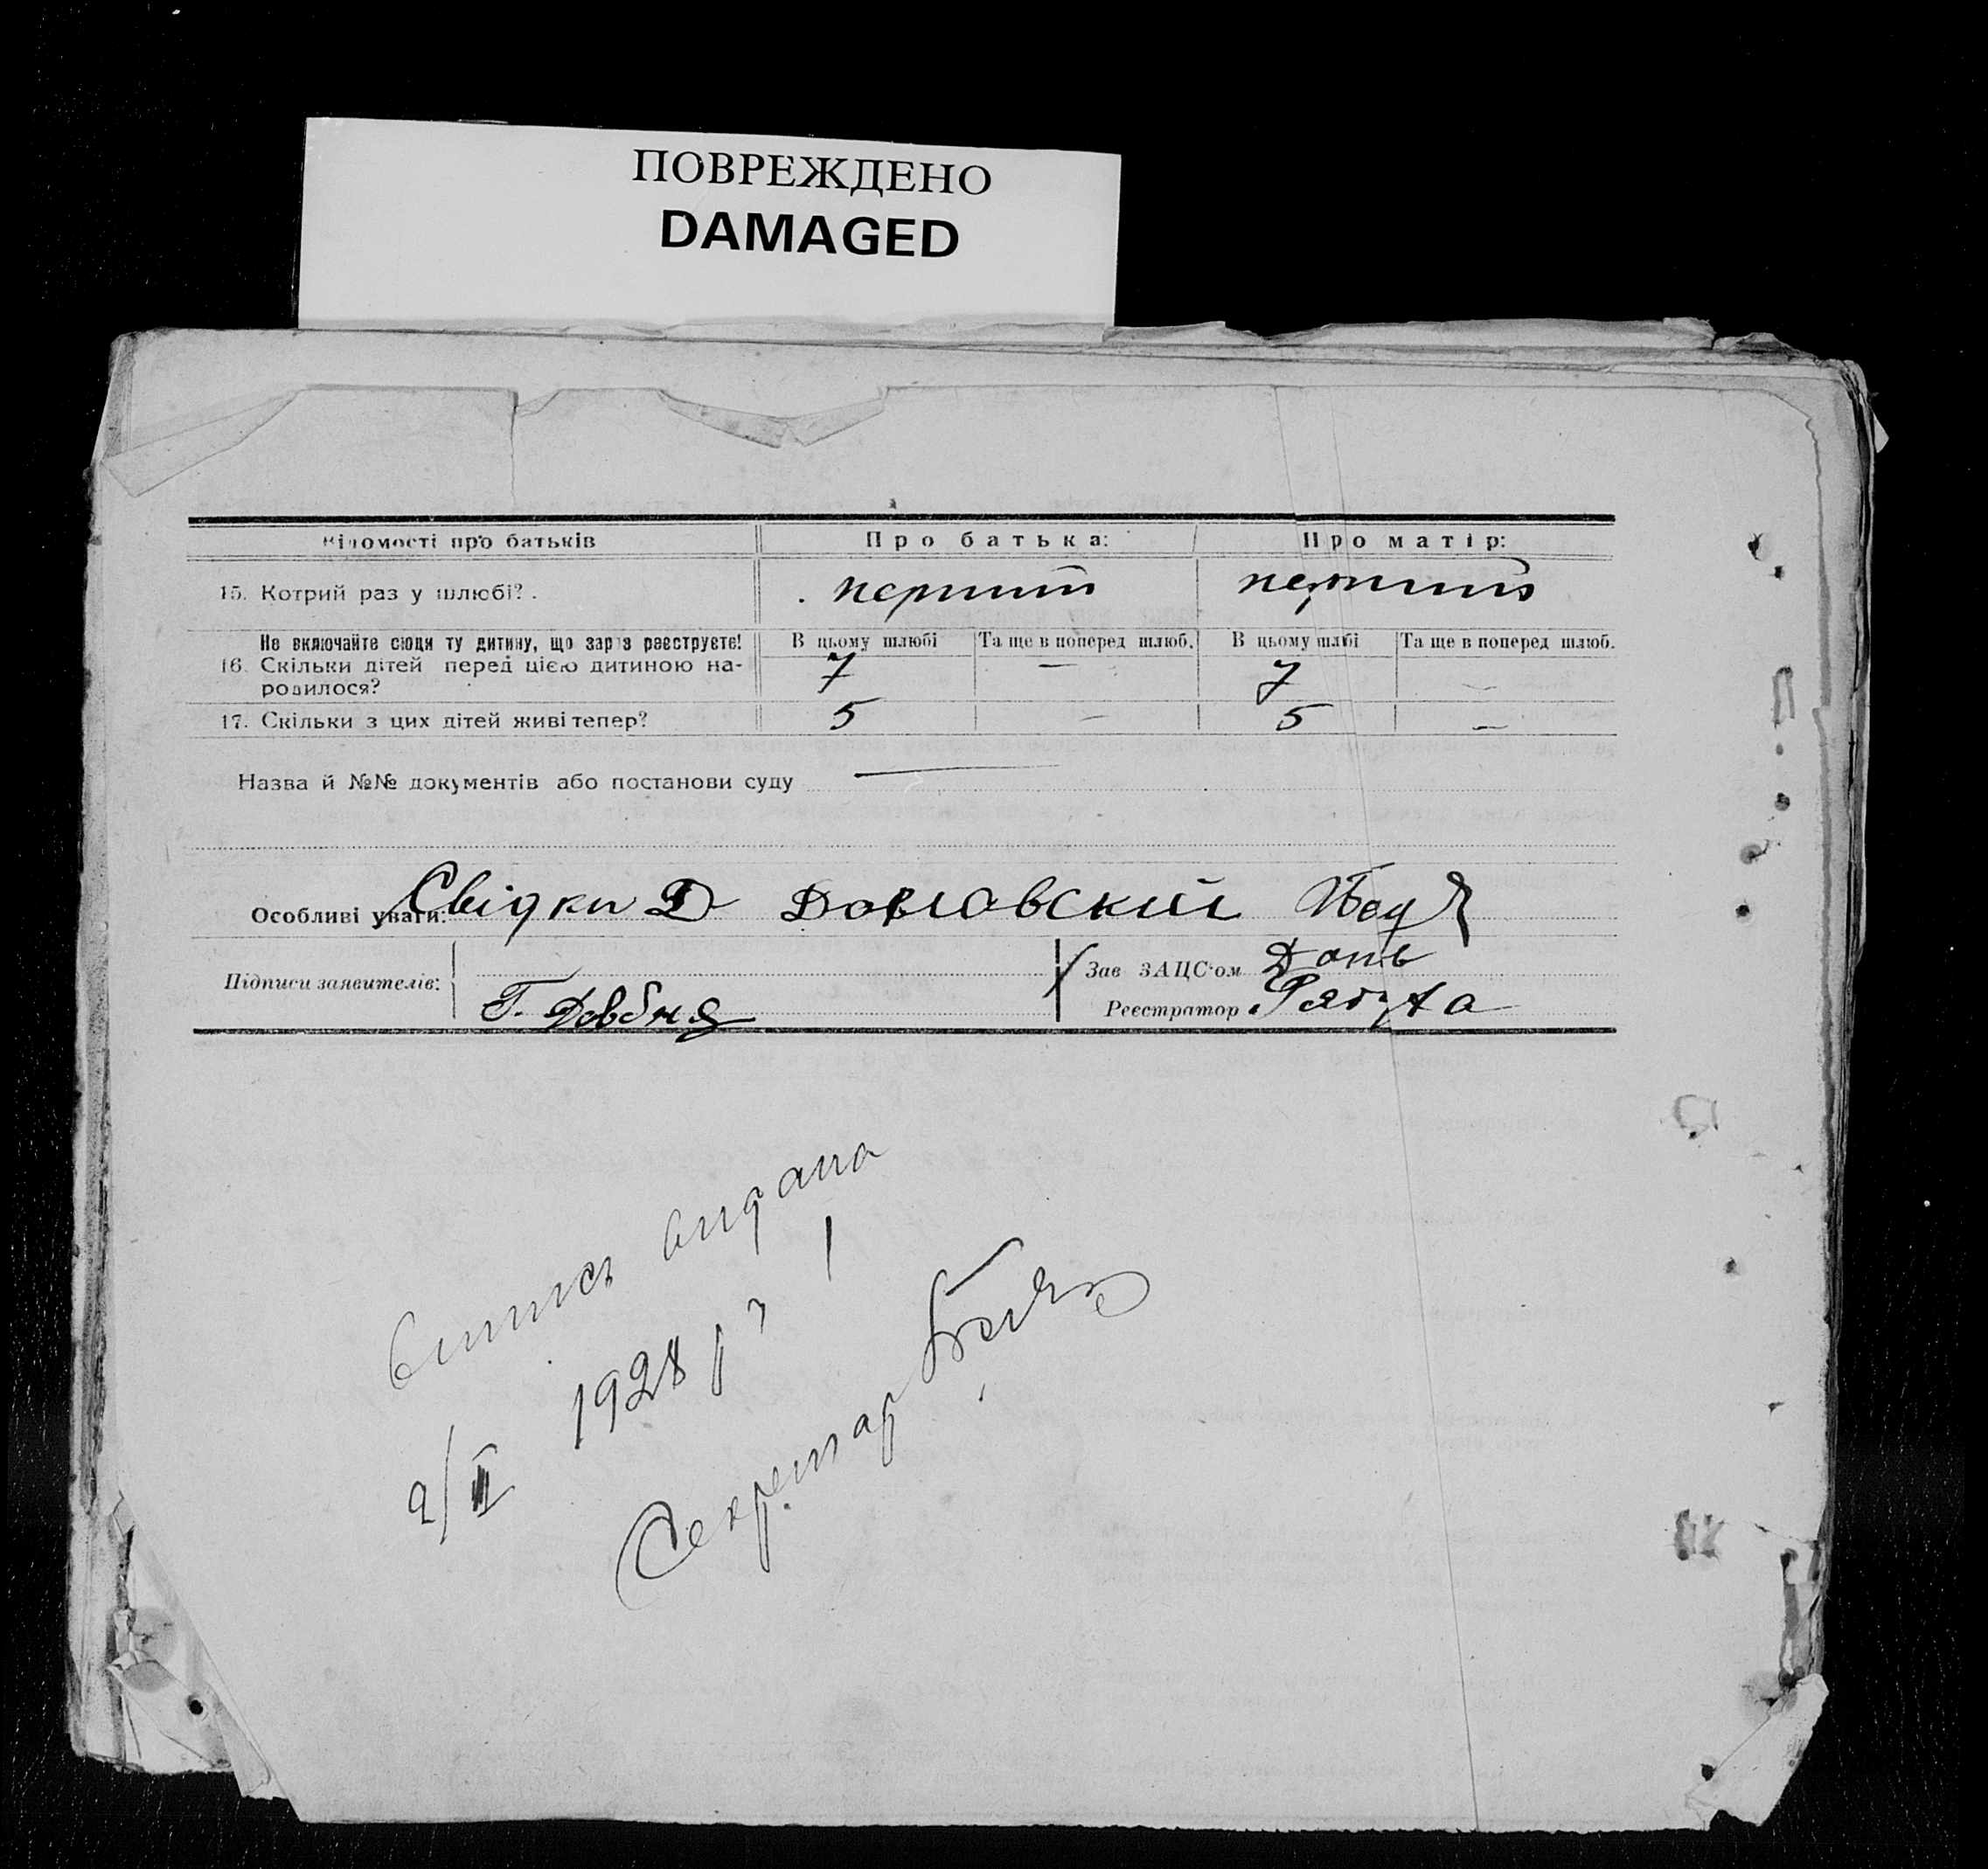 ПОВРЕЖДЕНО
DAMAGED
Відомості про батьків Про батька: Про матір:
15. Котрий раз у шлюбі? . перший перший
Не включайте сюди ту дитину, що зараз реєструєте! В цьому шлюбі Та ще в поперед шлюб. В цьому шлюбі Та ще в поперед шлюб.
16. Скільки дітей перед цією дитиною на- 7 — 7 —
родилося?
17. Скільки з цих дітей живі тепер? 5 — 5 —
Назва й №№ документів або постанови суду —
Особливі уваги: Свідки Д
Підписи заявителів: Зав ЗАЦС'ом
Г. Довбня Реєстратор
Випись видана
2/II 1928 р
Секретар